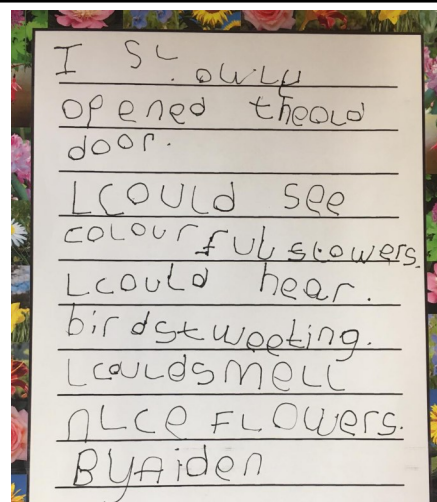 I slowly
opened theold
door.
I could see
colourful slowers.
I could hear.
birdstweeting.
I couldsmell
nice FLowers.
ByAiden